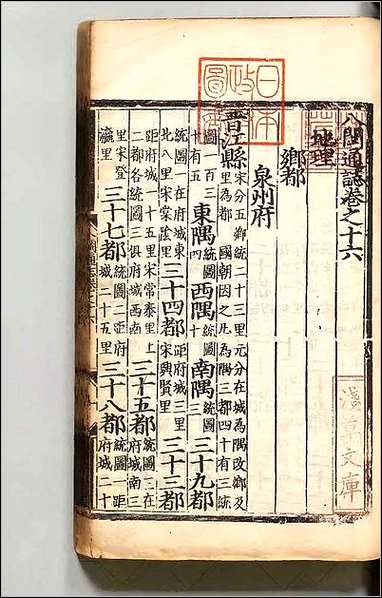 八閩通誌卷之十六
地理
鄉都
泉州府
晉江縣
宋分五鄉統二十三里元分在城為隅改鄉及
里為都 國朝因之凡為隅三都四十有三統
圖一百三
十有五
東隅
統圖
四
西隅
統圖
十
南隅
統圖
三
三十九都
統圖一在府城東
北八里宋棠陰里
三十四都
距府城三里
宋興賢里
三十三都
距府城一十五里宋常泰里上
二都各統圖三俱府城西南
三十五都
統圖二在
府城南三
里宋登
瀛里
三十七都
統圖二距府
城二十五里
三十八都
統圖一距
府城二十
日本
政府
圖書
淺草文庫